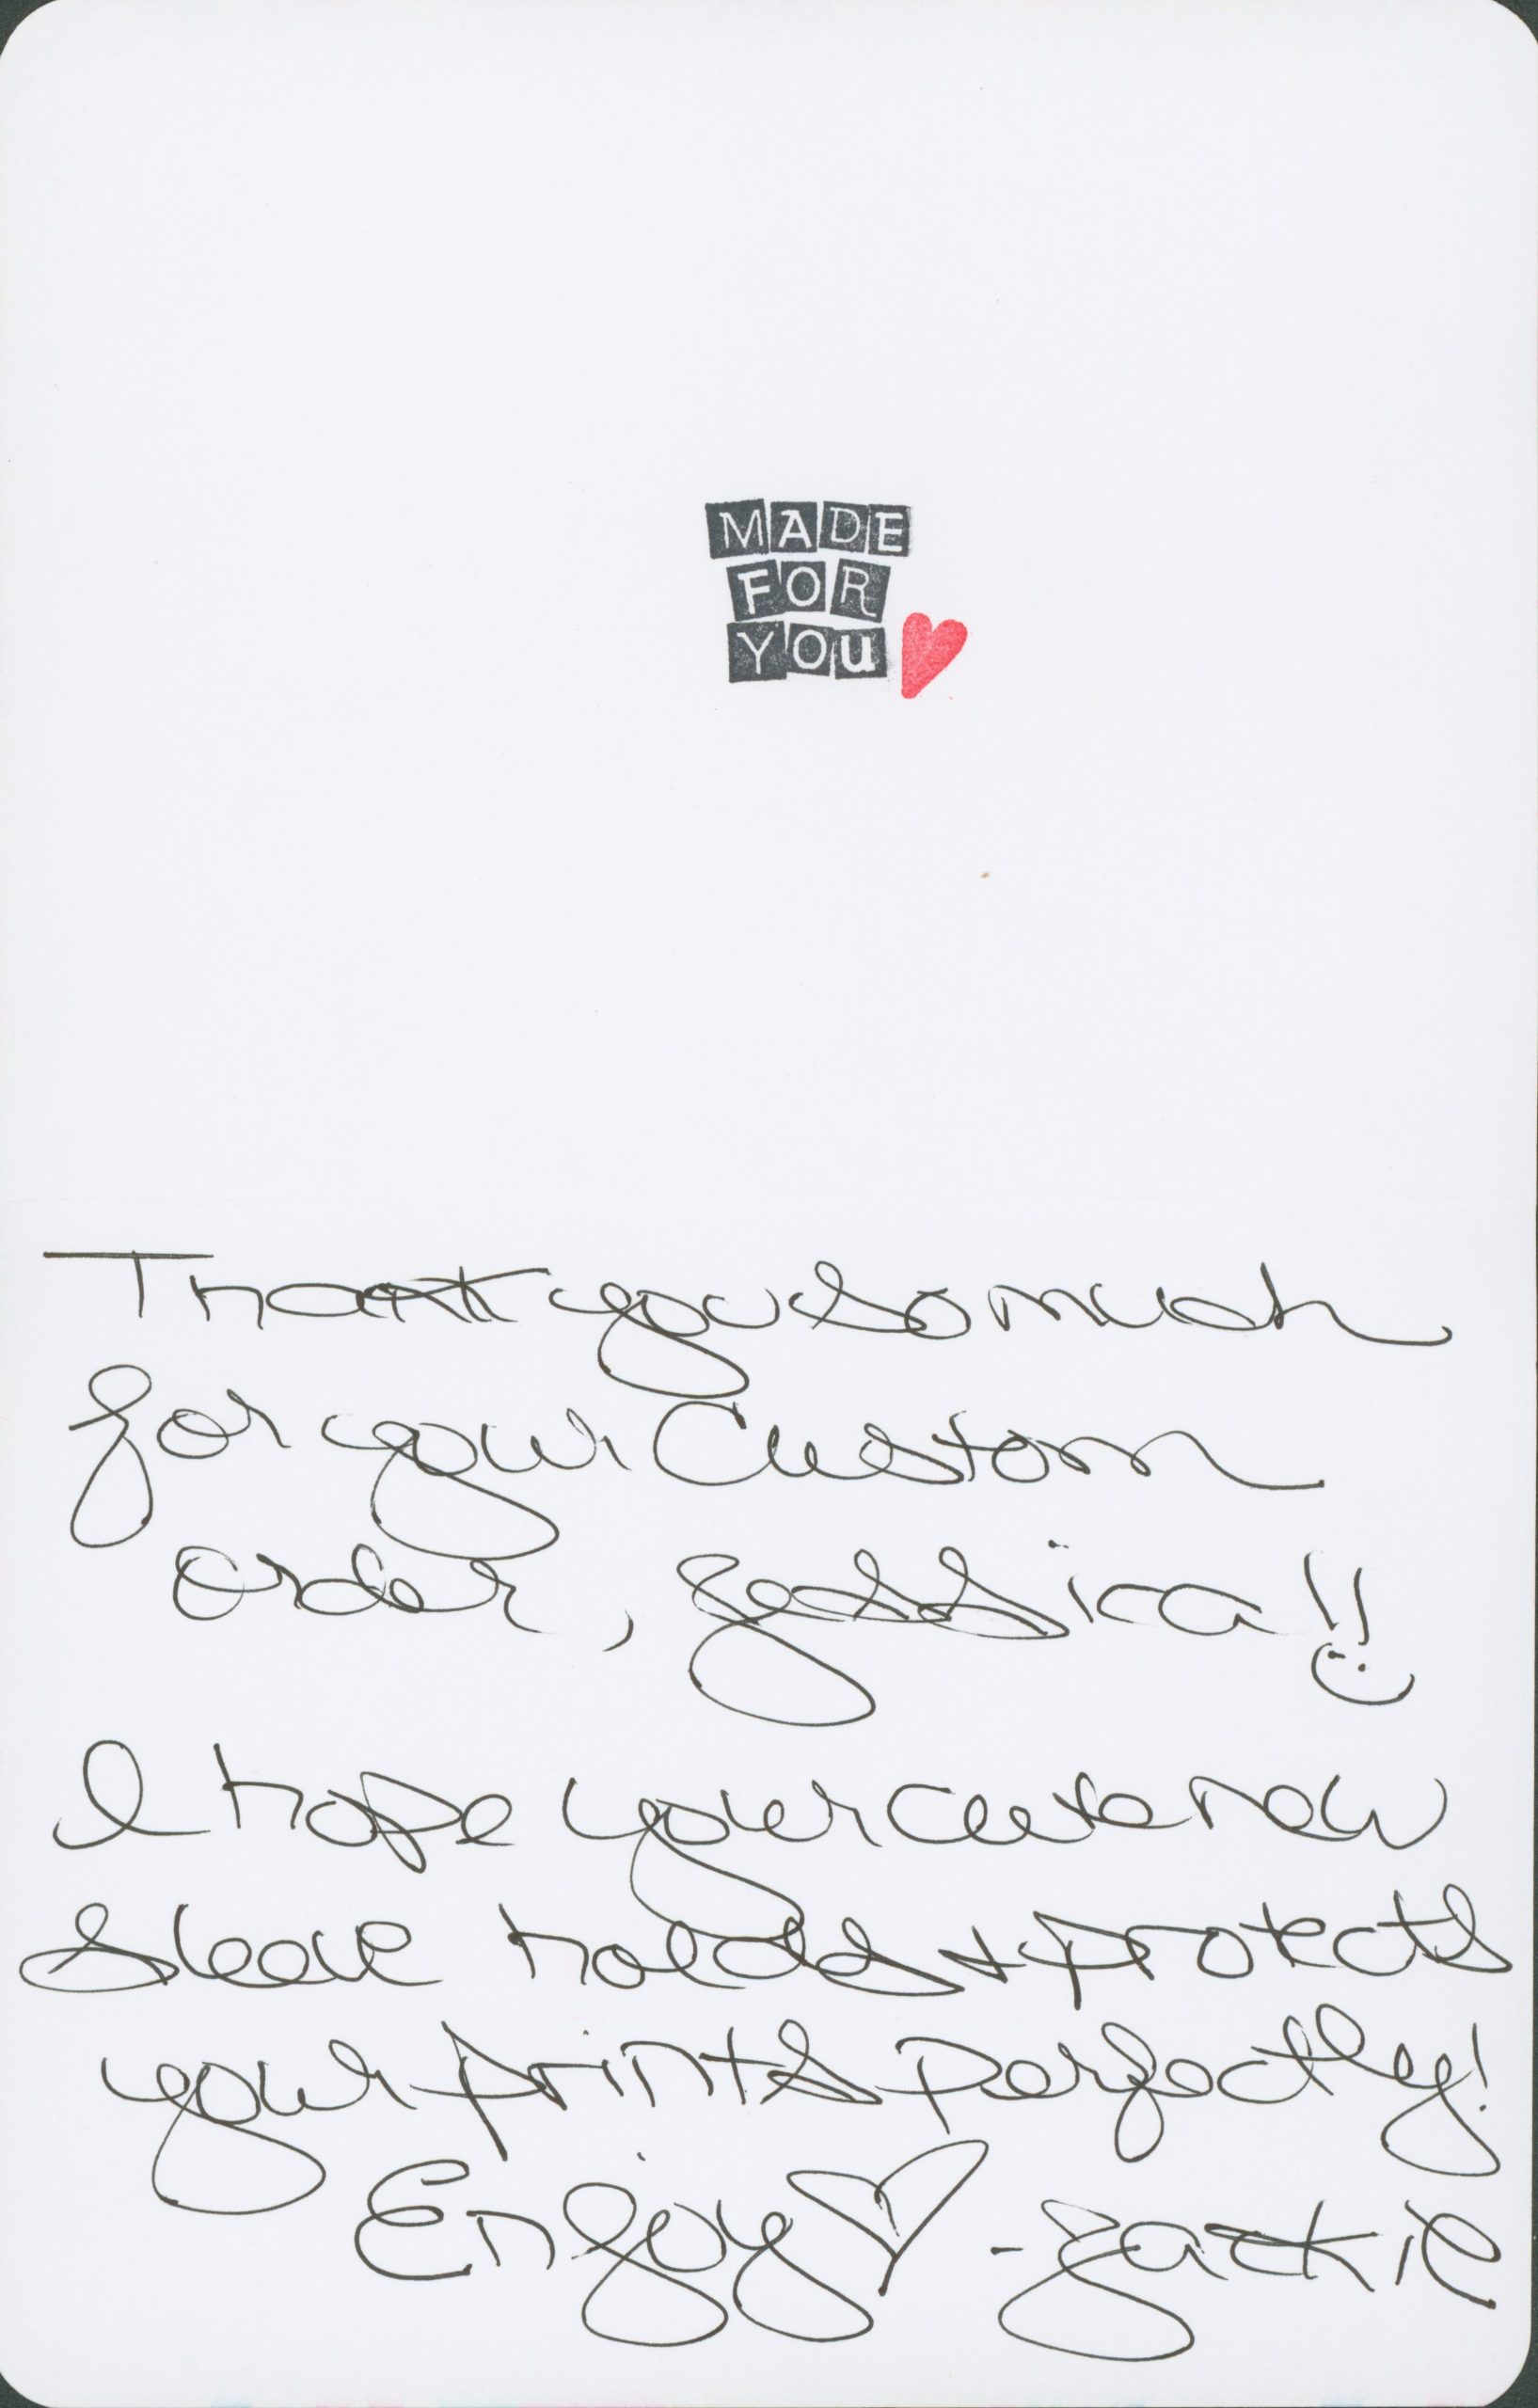 MADE
FOR
YOU
Thank you so much
for your Custom
order, Jessica!!
I hope your cute new
sleeve holds + protects
your prints perfectly!
Enjoy ♡ - Jackie